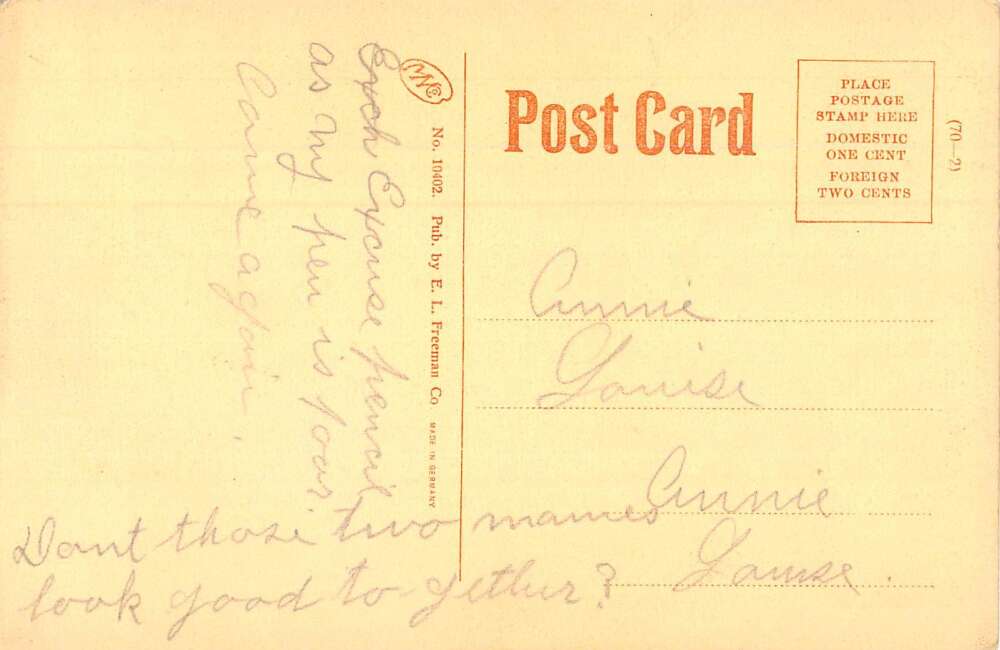 Exch Excuse pencil
as my pen is poor
Come again.
Dont those two names
look good to-gether?
No. 10402. Pub. by E. L. Freeman Co.
MADE IN GERMANY
Post Card
PLACE
POSTAGE
STAMP HERE
DOMESTIC
ONE CENT
FOREIGN
TWO CENTS
(70—2)
Annie
Louise
Annie
Louise.